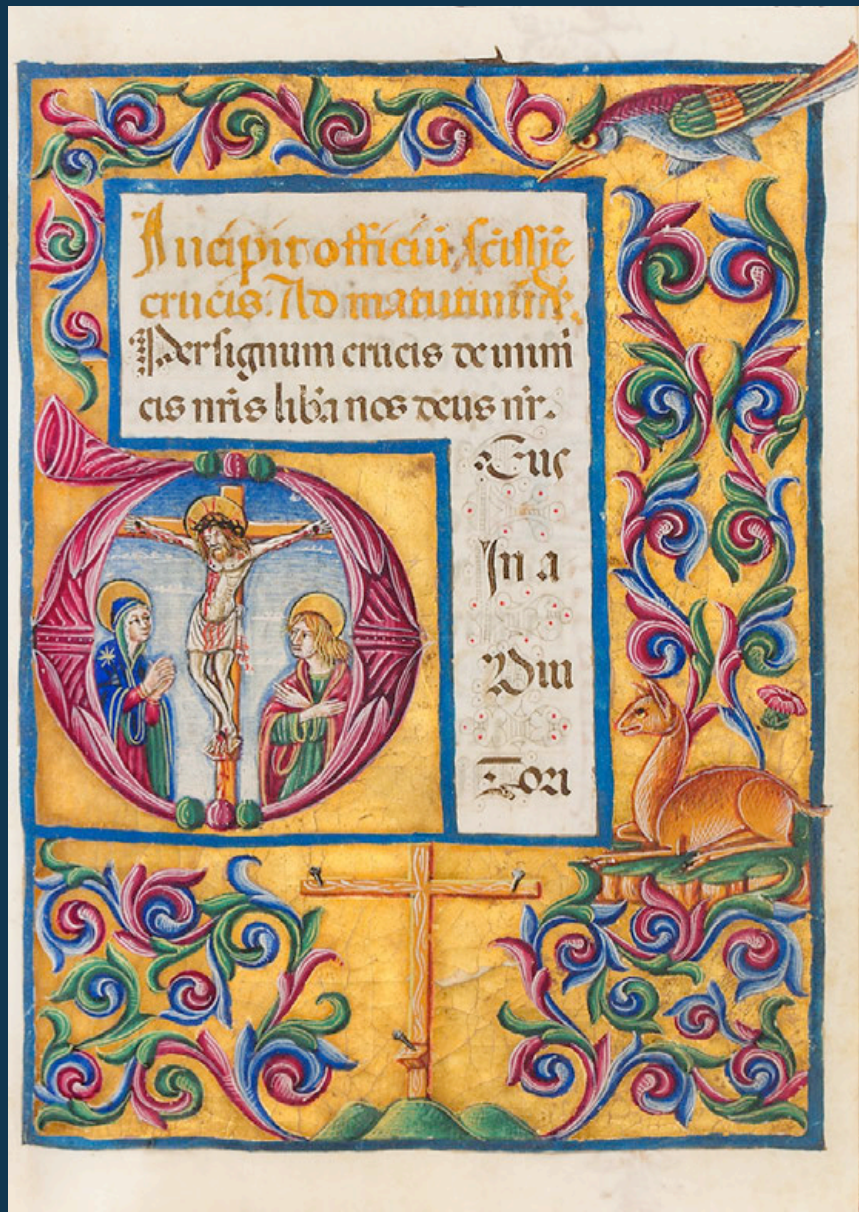 Incipit officiū scīssįe
crucis. Ad matutinū. ℣.
Per signum crucis de inimi
cis nr̄is libꝛa nos deus nr̄.
Eus
In a
Diu
Tori